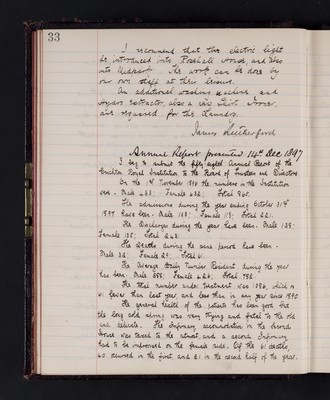 33
I recommend that the electric light
be introduced into Rosehall House, and also
into Midpark. The work can be done by
our own staff at their leisure.
An additional washing machine and
hydro extractor, also a new shirt ironer,
are required for the Laundry.
James Rutherford
Annual Report presented 14th Dec 1897
I beg to submit the fifty eighth Annual Report of the
Crichton Royal Institution to the Board of Trustees and Directors
On the 1st November 1896 the numbers in the Institution
were - Male Female Total
The admissions during the year ending October 31st
1897 have been - Male Female Total 221.
The discharges during the year have been - Male
Female Total
The deaths during the same period have been -
Male Female Total 61.
The average daily number Resident during the year
has been - Male Female Total
The total number under treatment was which is
61 fewer than last year, and less than in any year since 1890
The general health of the patients has been good but
the long cold spring was very trying and fatal to the old
and delicate. The Infirmary accommodation in the Second
House was taxed to the utmost and a second Infirmary
had to be improvised on the female side. Of the 61 deaths,
40 occurred in the first, and 21 in the second half of the year.